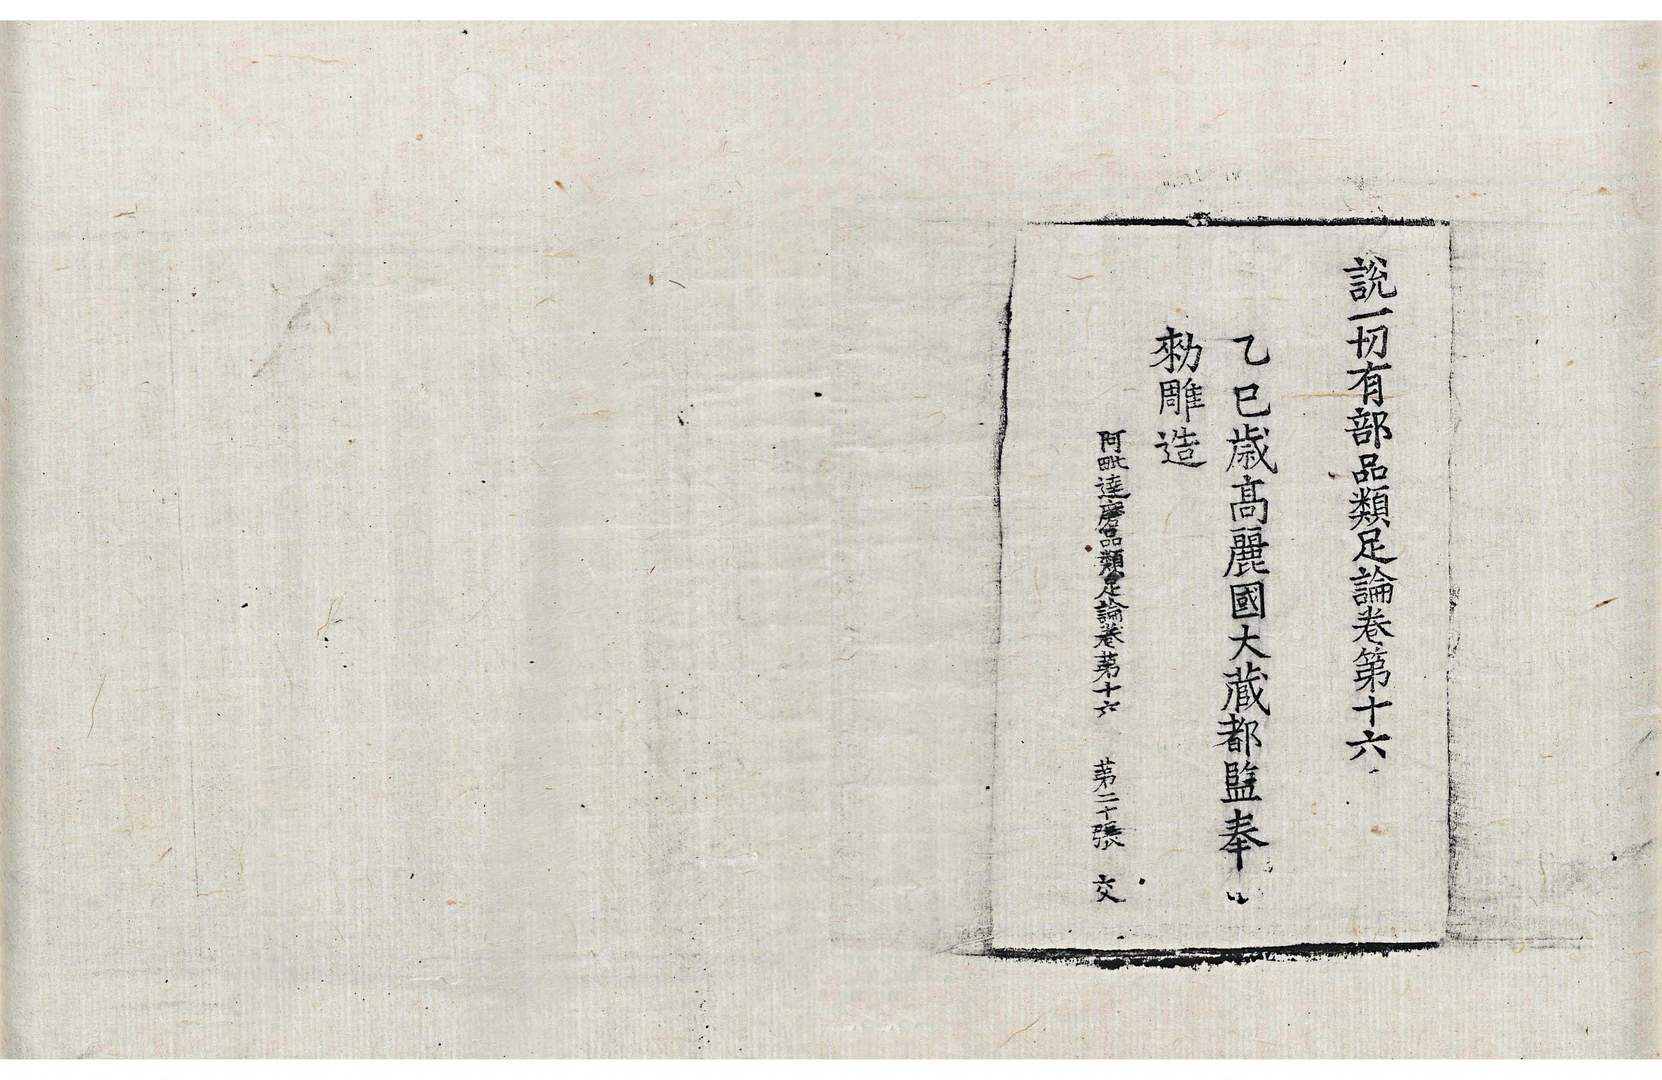 說一切有部品類足論卷第十六
乙巳歲高麗國大藏都監奉
勅雕造
阿毗達磨品類足論卷苐十六 苐二十張 交